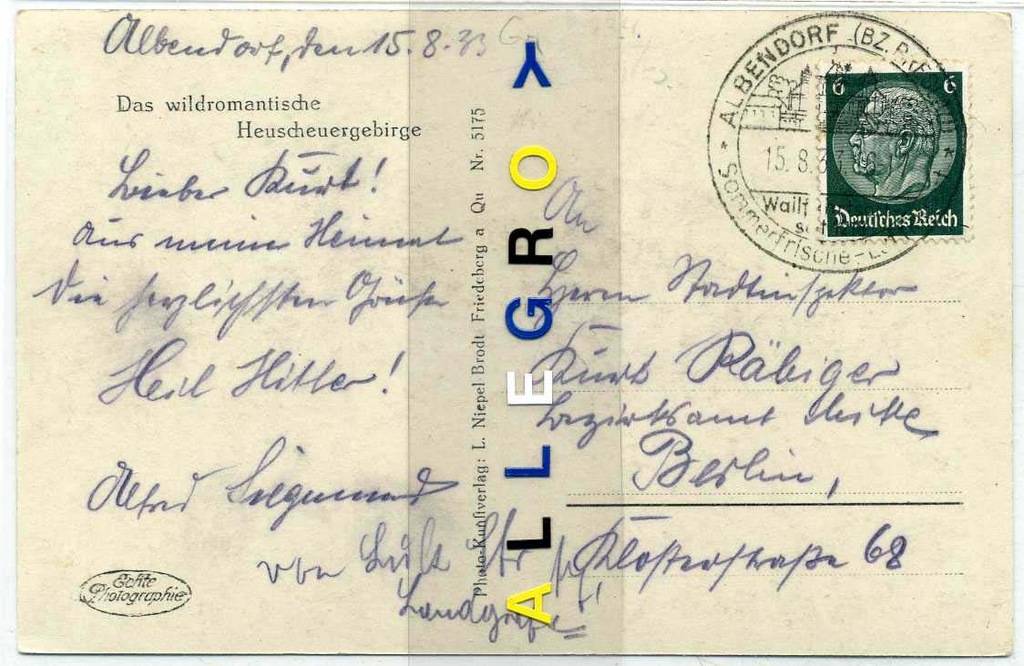 Albendorf, den 15.8.33
Das wildromantische
Heuscheuergebirge
Lieber Kurt!
Aus meiner Heimat
die herzlichsten Grüße
Heil Hitler!
Alfred Siegmund
von
Echte
Photographie
Photo-Kunstverlag: L. Niepel Brodt Friedeberg a Qu Nr. 5175
ALLEGROY
ALBENDORF (BZ. BRESLAU)
15.8.3
Wallf
Sommerfrische
6 6
Deutsches Reich
An
Herrn Stadtinspektor
Kurt Räbiger
Bezirksamt Mitte
Berlin,
Klosterstraße 68